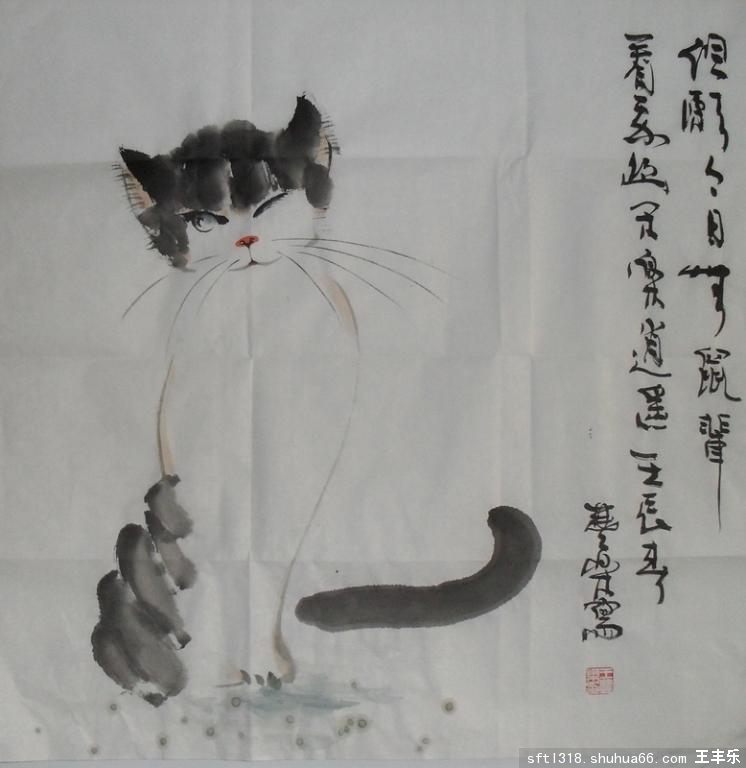 但願今日無鼠輩
看我闲樂逍遥壬辰春
寫
sftl318.shuhua66.com 王丰乐